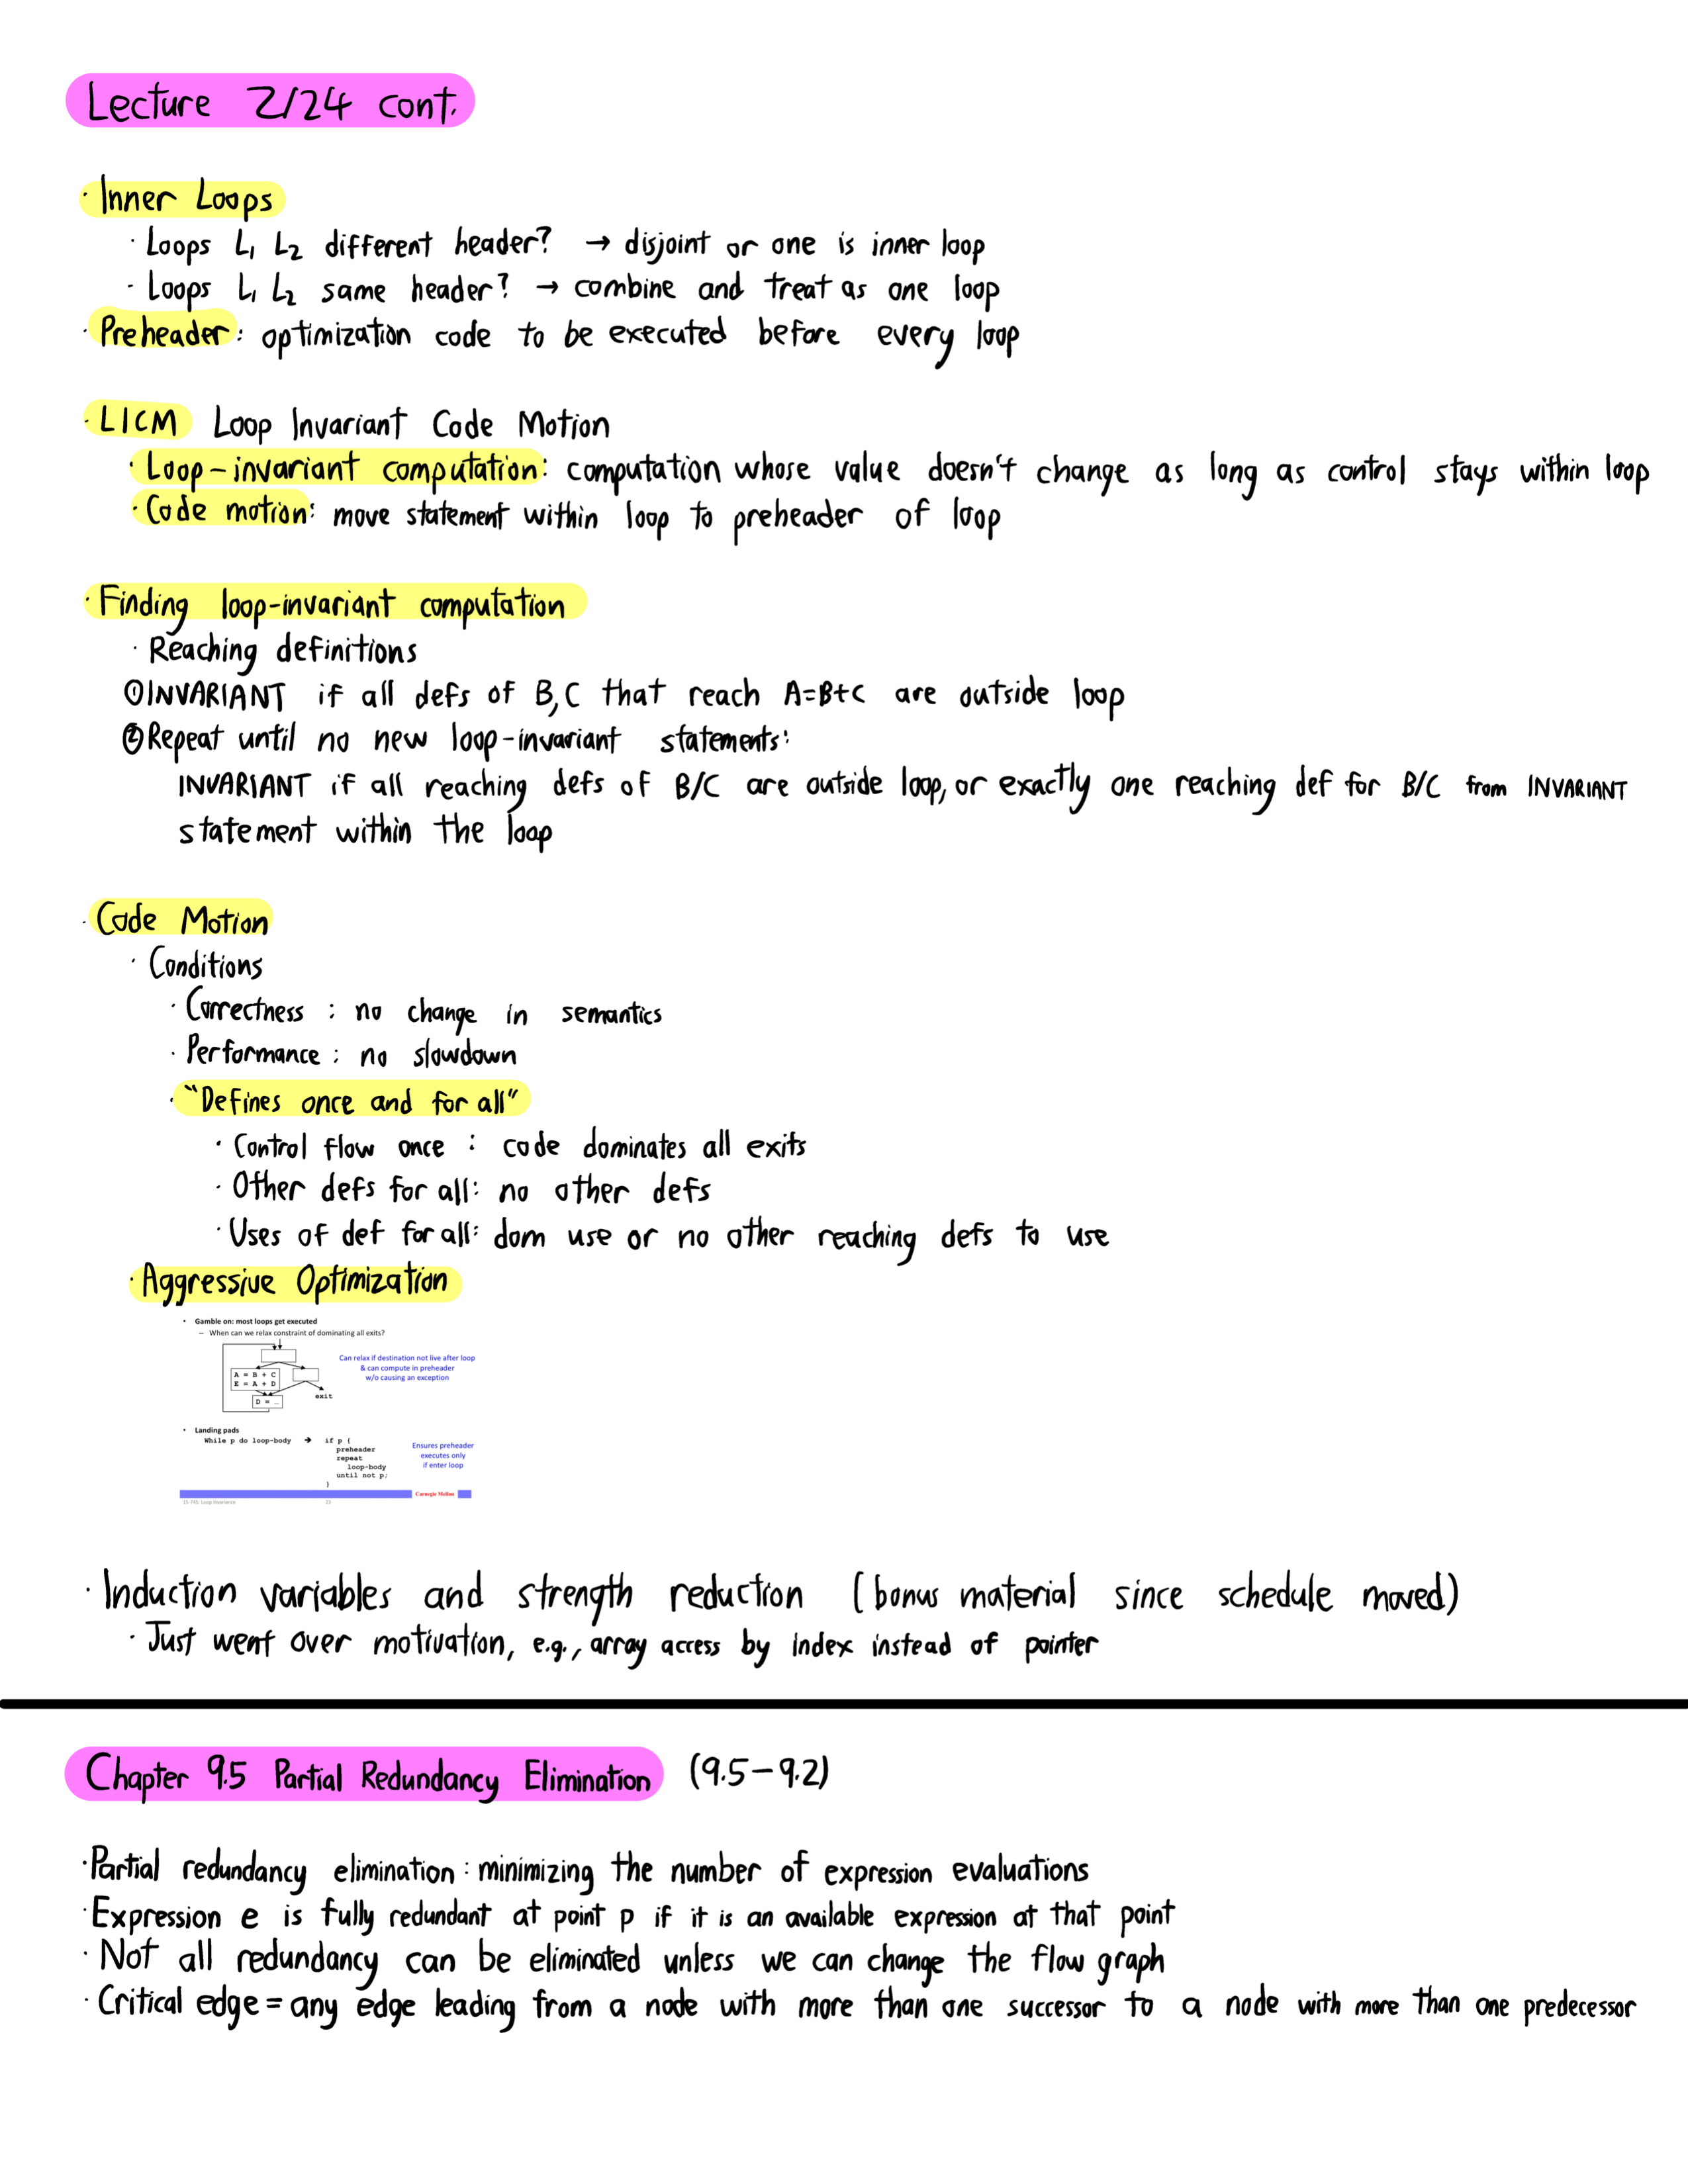 Lecture 2/24 cont.
· Inner Loops
· Loops L1 L2 different header? → disjoint or one is inner loop
· Loops L1 L2 same header? → combine and treat as one loop
· Preheader: optimization code to be executed before every loop
· LICM Loop Invariant Code Motion
· Loop-invariant computation: computation whose value doesn't change as long as control stays within loop
· Code motion: move statement within loop to preheader of loop
· Finding loop-invariant computation
· Reaching definitions
① INVARIANT if all defs of B,C that reach A=B+C are outside loop
② Repeat until no new loop-invariant statements:
INVARIANT if all reaching defs of B/C are outside loop, or exactly one reaching def for B/C from INVARIANT
statement within the loop
· Code Motion
· Conditions
· Correctness : no change in semantics
· Performance : no slowdown
· "Defines once and for all"
· Control flow once : code dominates all exits
· Other defs for all: no other defs
· Uses of def for all: dom use or no other reaching defs to use
· Aggressive Optimization
• Gamble on: most loops get executed
– When can we relax constraint of dominating all exits?
Can relax if destination not live after loop
& can compute in preheader
w/o causing an exception
A = B + C
E = A + D
exit
D = …
• Landing pads
While p do loop-body → if p {
preheader
repeat
loop-body
until not p;
}
Ensures preheader
executes only
if enter loop
Carnegie Mellon
15-745: Loop Invariance 23
· Induction variables and strength reduction (bonus material since schedule moved)
· Just went over motivation, e.g., array access by index instead of pointer
Chapter 9.5 Partial Redundancy Elimination (9.5-9.2)
· Partial redundancy elimination: minimizing the number of expression evaluations
· Expression e is fully redundant at point p if it is an available expression at that point
· Not all redundancy can be eliminated unless we can change the flow graph
· Critical edge = any edge leading from a node with more than one successor to a node with more than one predecessor